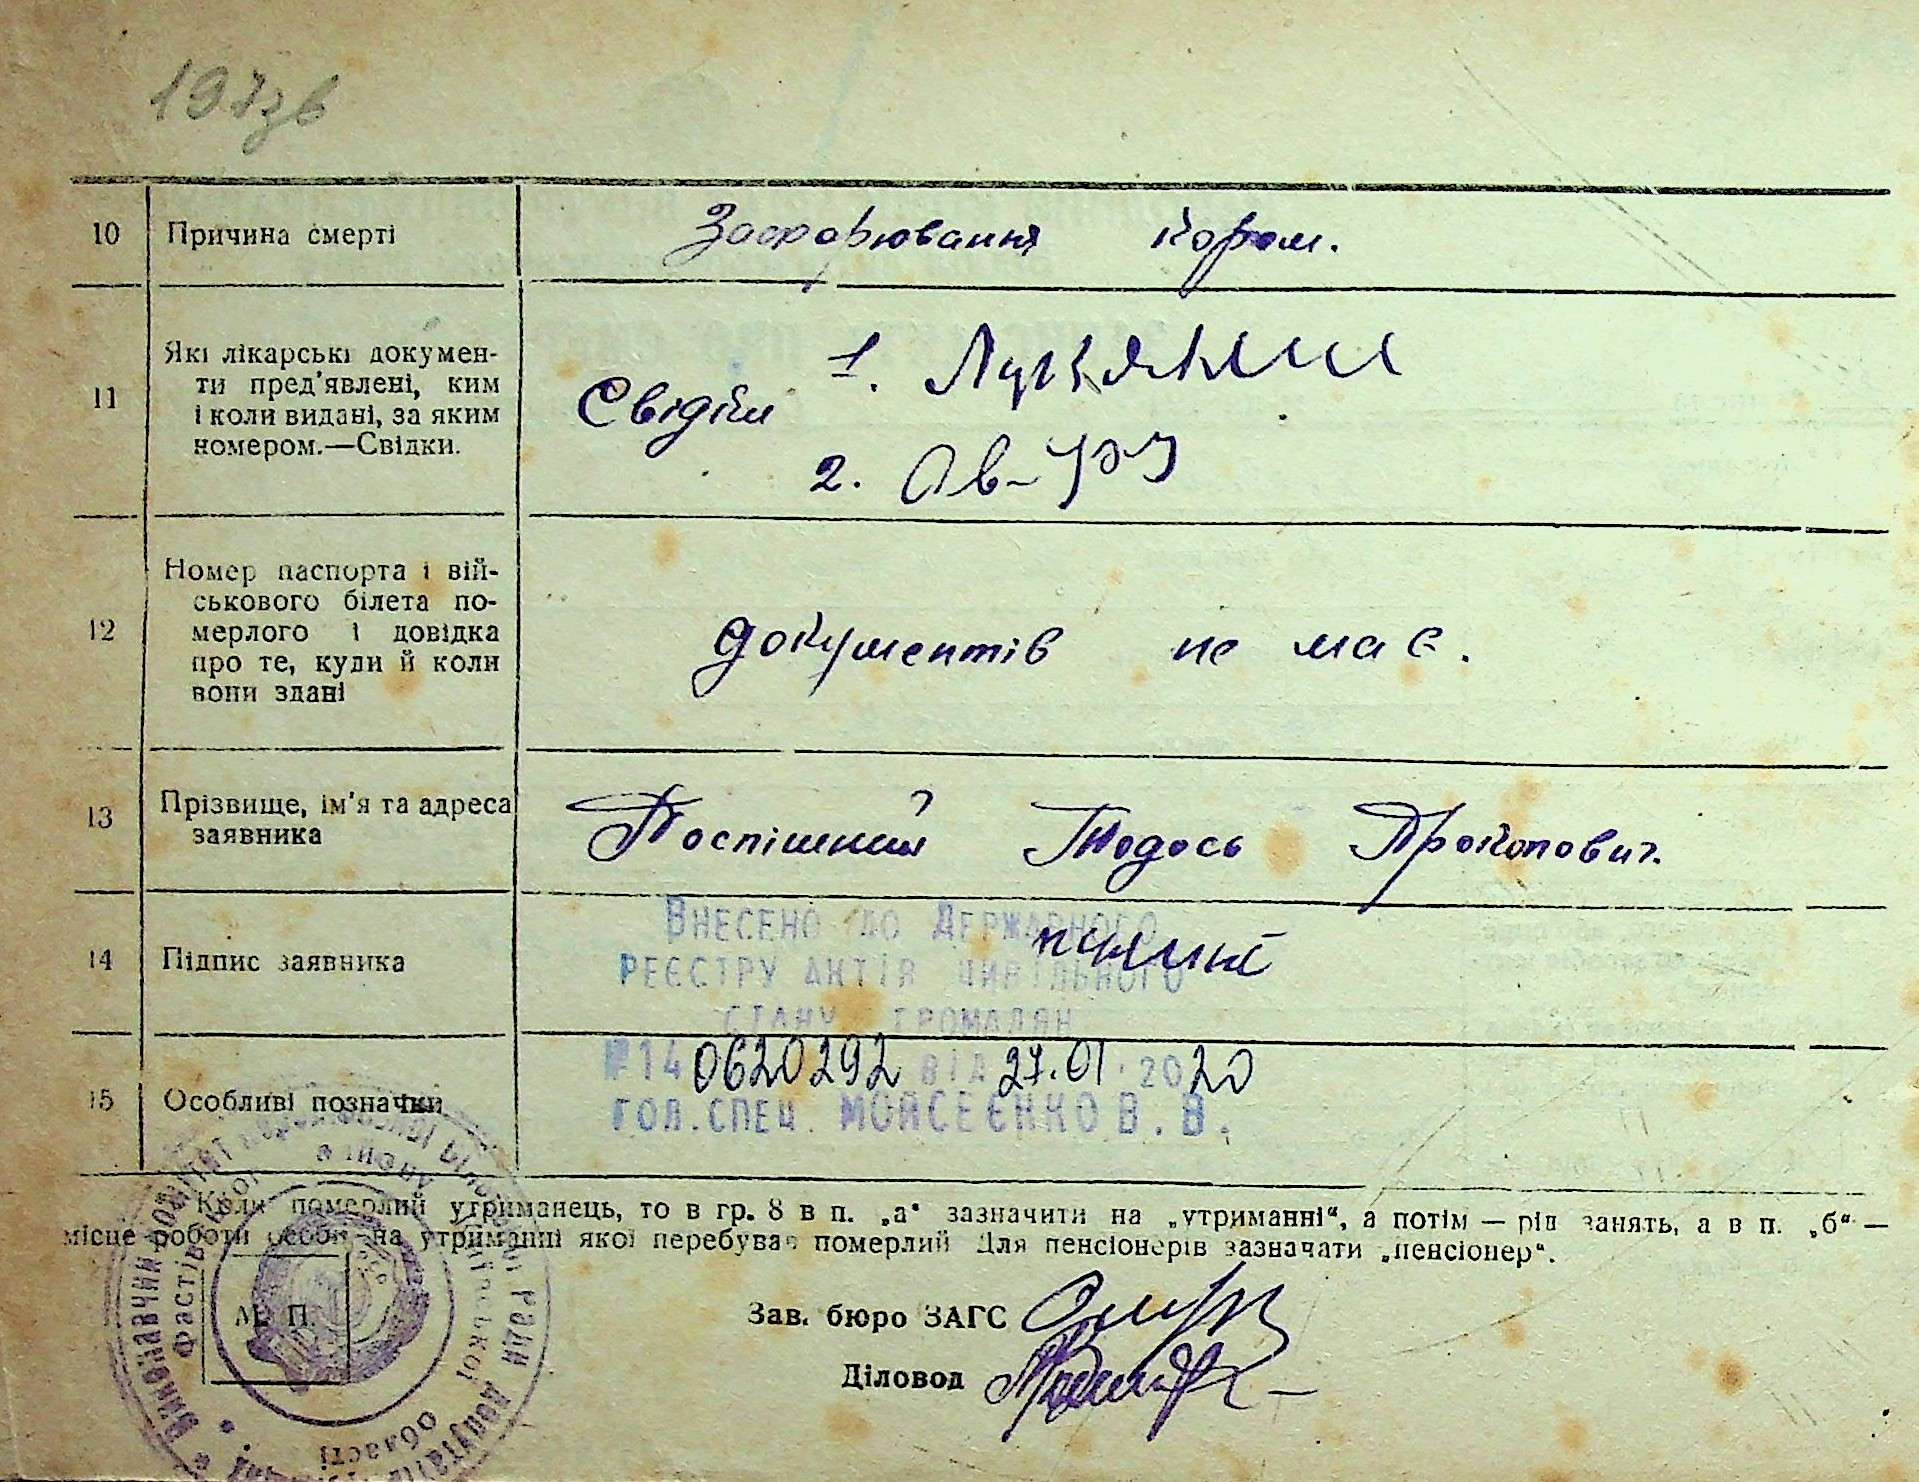 197зв
10 Причина смерті Захворювання кором.
11 Які лікарські докумен-
ти пред'явлені, ким
і коли видані, за яким
номером.—Свідки.
Свідки 1. Лукяни
2.
12 Номер паспорта і вій-
ськового білета по-
мерлого і довідка
про те, куди й коли
вони здані
документів не має.
13 Прізвище, ім'я та адреса
заявника
Поспішний Тодось Прокопович.
14 Підпис заявника
Внесено до Державного
реєстру актів цивільного
стану громадян
№14 0620292 від 27.01.2020
гол.спец. Мойсеєнко В.В.
15 Особливі позначки
Коли померлий утриманець, то в гр. 8 в п. „а" зазначити на „утриманні", а потім — рід занять, а в п. „б" —
місце роботи особи на утриманні якої перебував померлий Для пенсіонерів зазначати „пенсіонер".
М. П.
Зав. бюро ЗАГС
Діловод
Виконавчий комітет районної Ради депутатів
Фастів Київської області